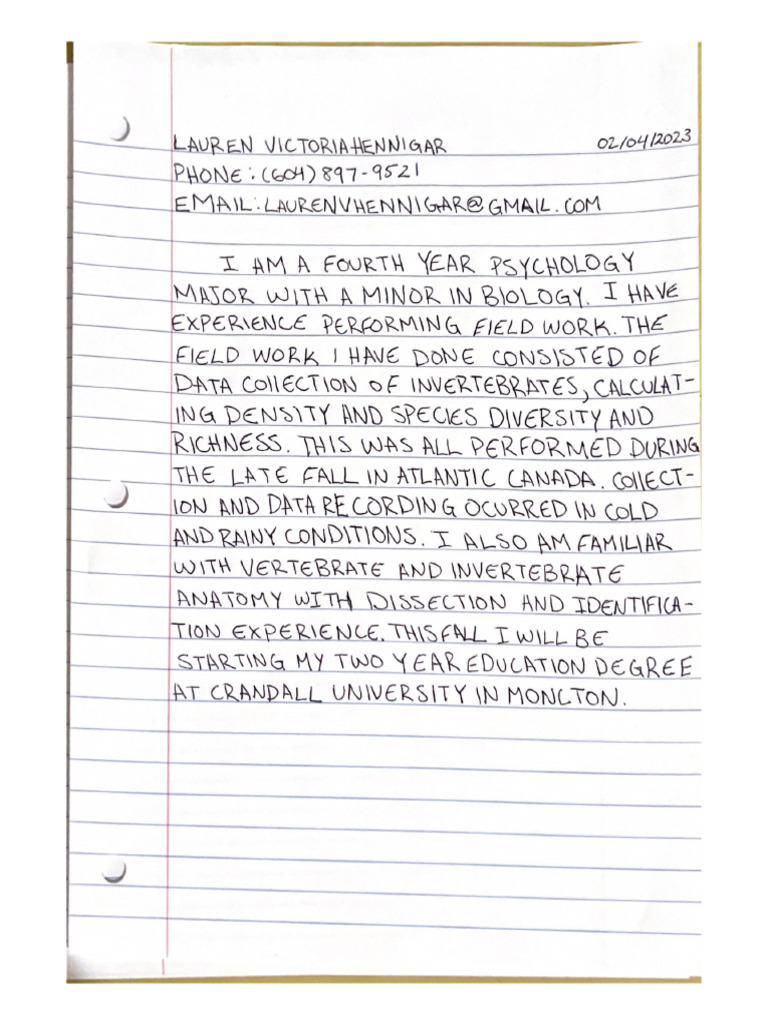 LAUREN VICTORIA HENNIGAR 02/04/2023
PHONE: (604) 897-9521
EMAIL: LAURENVHENNIGAR@GMAIL.COM
I AM A FOURTH YEAR PSYCHOLOGY
MAJOR WITH A MINOR IN BIOLOGY. I HAVE
EXPERIENCE PERFORMING FIELD WORK. THE
FIELD WORK I HAVE DONE CONSISTED OF
DATA COllECTION OF INVERTEBRATES, CALCULAT-
ING DENSITY AND SPECIES DIVERSITY AND
RICHNESS. THIS WAS ALL PERFORMED DURING
THE LATE FALL IN ATLANTIC CANADA. COllECT-
ION AND DATA RECORDING OCURRED IN COLD
AND RAINY CONDITIONS. I ALSO AM FAMILIAR
WITH VERTEBRATE AND INVERTEBRATE
ANATOMY WITH DISSECTION AND IDENTIFICA-
TION EXPERIENCE. THIS FALL I WILL BE
STARTING MY TWO YEAR EDUCATION DEGREE
AT CRANDALL UNIVERSITY IN MONCTON.